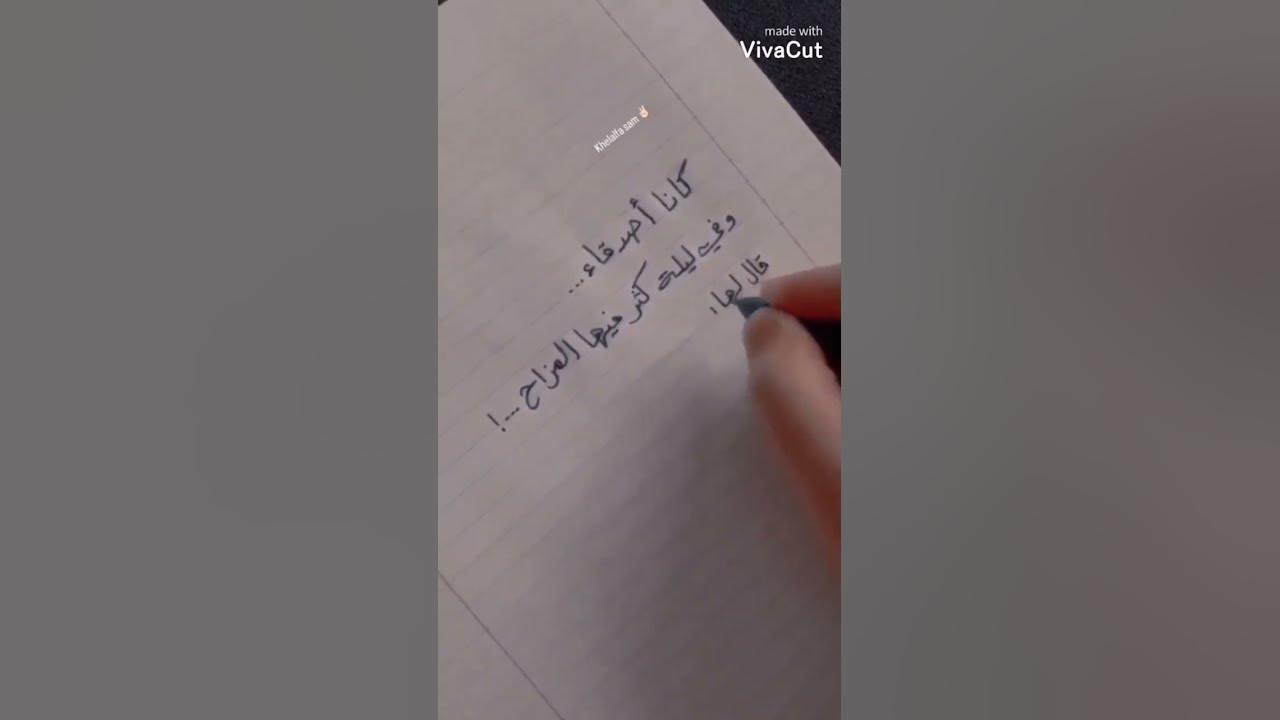 made with
VivaCut
Khelalfa sam ✌🏻
كانا أصدقاء...
وفي ليلة كثر فيها المزاح...!
قال لها: